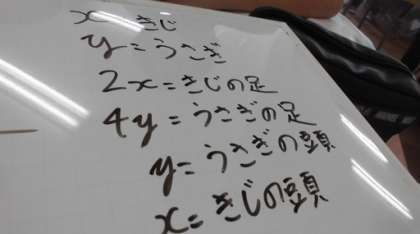 x = きじ
y = うさぎ
2x = きじの足
4y = うさぎの足
y = うさぎの頭
x = きじの頭